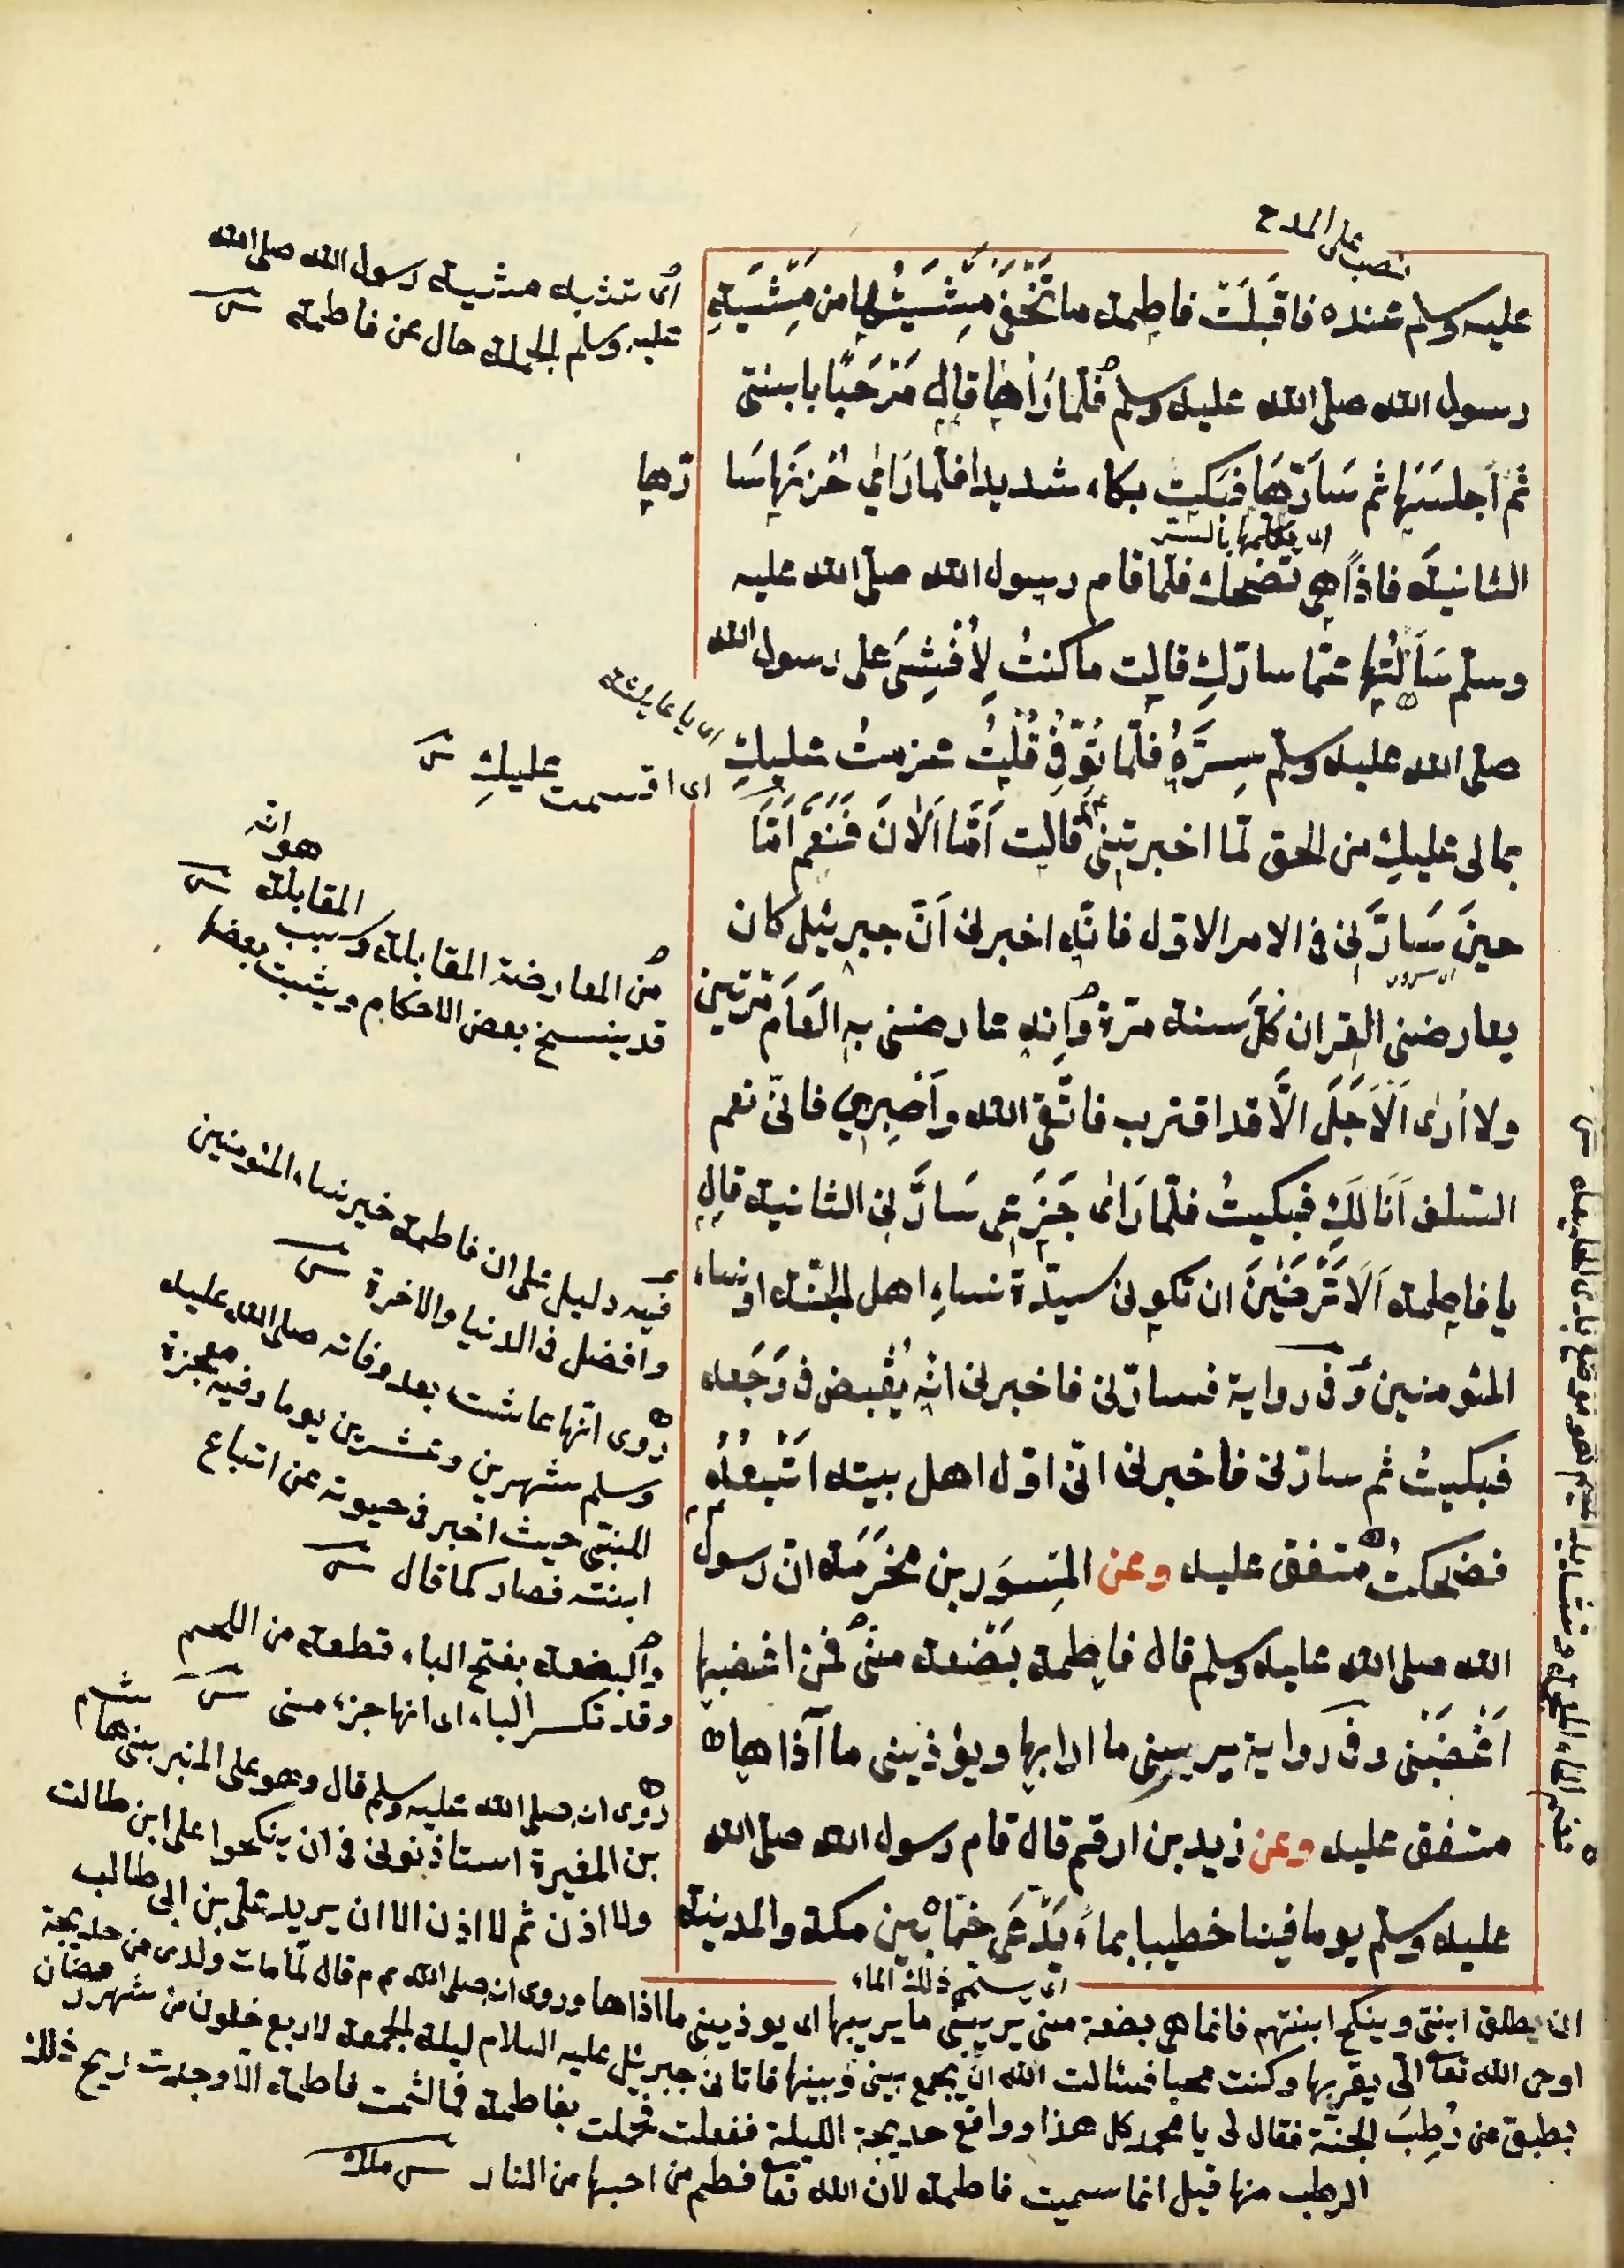 نصب على المدح
عليه وسلم عنده فاقبَلَتْ فاطمة ما تَخْفَى مِشْيَتُها من مِشْيَةِ
رسول الله صلى الله عليه وسلم فلمّا رَاٰها قال مَرْحَبًا بابنتى
ثم اَجلسَهَا ثم سَارَّهَا فبَكت بكاء شديدا فلمّا رَاٰى حُزنَها سَا رّها
اى يكلّمها بالسرّ
الثانيةَ فاذا هي تضحك فلمّا قام رسول الله صلى الله عليه
وسلم سَاَلتُها عمّا سارّكِ قالت ما كنتُ لِاُفْشِىَ على رسول الله
صلى الله عليه وسلم سِرَّهُ فلمّا تُوُفِّىَ قُلْتُ عزمتُ عليكِ
بما لى عليكِ من الحق لمّا اخبرتِنى قالت اَمّا اَلْاٰنَ فَنَعَمْ اَمّا
حينَ سَارَّنى فى الامر الاوّل فانّه اخبرنى اَنّ جبرئيل كان
يعارضنى القران كلَّ سنة مرّة وانه عارضنى به العَامَ مرّتين
ولا اُرى الْاَجَلَ الّا قد اقترب فاتَّقى الله واصْبِرِى فانّى نعم
السلف اَنَا لَكِ فبكيتُ فلمّا رَاى جَزَعى سَارَّنى الثانية قال
يا فاطمة اَلَا تَرْضَيْنَ ان تكونى سيّدة نساءِ اهل الجنّة او نساء
المؤمنين وَفى رواية فسارّنى فاخبرنى انّه يُقْبض فى وَجَعه
فبكيتُ ثم سارّنى فاخبرنى انّى اوّل اهل بيته اتْبَعُهُ
فضحكتُ متفق عليه وعن المِسْوَر بن مَخْرَمَة انّ رسول
الله صلى الله عليه وسلم قال فاطمة بَضْعة منّى فمن اغضبها
اَغْضَبَنى وفى رواية يريبنى ما ارابها ويؤذينى ما آذاها
متفق عليه وعن زيد بن ارقم قال قام رسول الله صلى الله
عليه وسلم يوما فينا خطيبا بماءٍ يُدْعَى خمّا بين مكة والمدينة
اى يسمّى ذلك الماء
اى تشبه مشية رسول الله صلى الله
عليه وسلم الجملة حال عن فاطمة
اى يا عايشة
اى اقسمت عليكِ
هو انه
من المعارضة المقابلة وسبب المقابلة
قد ينسخ بعض الاحكام ويثبت بعضها
فيه دليل على ان فاطمة خير نساء المؤمنين
وافضل فى الدنيا والاخرة
روى انّها عاشت بعد وفاته صلى الله عليه
وسلم شهرين وعشرين يوما وفيه معجزة
النبى حيث اخبر فى حيوته عن اتباع
ابنته فصار كما قال
والبضعة بفتح الباء قطعة من اللحم
وقد تكسر الباء اى انها جزء منى
روى انه صلى الله عليه وسلم قال وهو على المنبر بنى هشام
بن المغيرة استاذنونى فى ان ينكحوا على ابن طالب
ولا اذن ثم لا اذن الا ان يريد على بن ابى طالب
ان يطلق ابنتى وينكح ابنتهم فانما هى بضعة منى يريبنى ما يريبها اى يوذينى ما اذاها وروى انه صلى الله عم م قال لمّا مات ولدى من خديجة
اوحى الله تعا الىّ يقربها وكنت محبا فسئالت الله ان يجمع بينى وبينها فاتانى جبرييل عليه السلام ليلة الجمعة لاربع خلون من شهر رمضان
بطبق من رُطب الجنّة فقال لى يا محمد كل هذا وواقع خديجة الليلة ففعلت فحملت بفاطمة فما لثمت فاطمة الّا وجدت ريح ذلك
الرطب منها قيل انما سميت فاطمة لان الله تعا فطم من احبها من النار